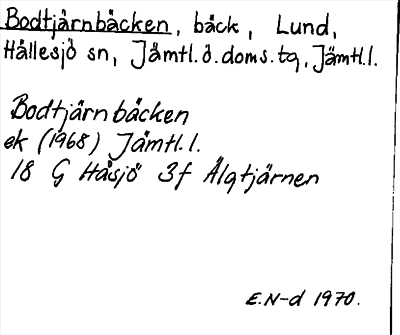 Bodtjärnbäcken, bäck, Lund,
Hällesjö sn, Jämtl.ö.doms.tg, Jämtl.l.
Bodtjärnbäcken
ek (1968) Jämtl.l.
18 G Håsjö 3f Älgtjärnen
E.N-d 1970.